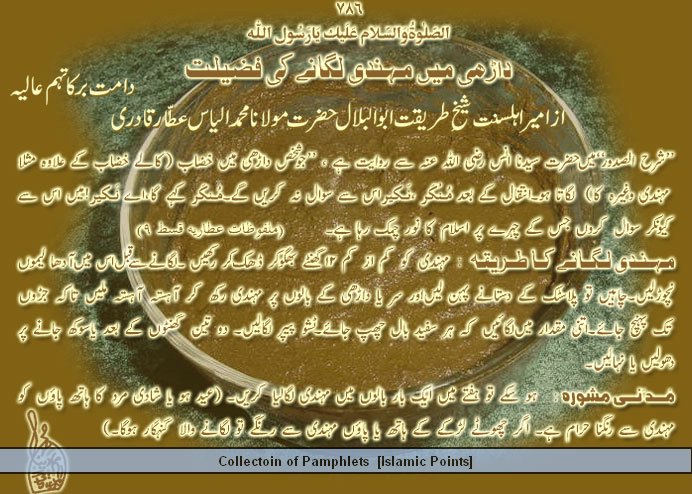 ۷۸۶
الصلوٰۃ والسلام علیک یارسول اللہ
داڑھی میں مہندی لگانے کی فضیلت
دامت برکاتہم عالیہ
از امیر اہلسنت شیخِ طریقت ابوالبلال حضرت مولانا محمد الیاس عطّار قادری
"شرح الصدور" میں حضرت سیدنا انس رضی اللہ عنہ سے روایت ہے ، "جو شخص داڑھی میں خضاب (کالے خضاب کے علاوہ مثلاً
مہندی وغیرہ کا) لگاتا ہو۔ انتقال کے بعد مُنکَر ،نَکیر اس سے سوال نہ کریں گے۔ مُنکَر کہے گا،اے نَکیر!میں اس سے
کیونکر سوال کروں جس کے چہرے پر اسلام کا نور چمک رہا ہے۔ (ملفوظات عطاریہ قسط ۹)
مہندی لگانے کا طریقہ : مہندی کو کم از کم ۱۲ گھنٹے بھگو کر ڈھک کر رکھیں ۔لگانے سے قبل اس میں آدھا لیموں
نچوڑ لیں۔ چاہیں تو پلاسٹک کے دستانے پہن لیں اور سر یا داڑھی کے بالوں پر مہندی رکھ کر آہستہ آہستہ ملیں تاکہ جڑوں
تک پہنچ جائے۔ اتنی مقدار میں لگائیں کہ ہر سفید بال چھپ جائے۔ ٹشو پیپر لگالیں۔ دو تین گھنٹوں کے بعد یا سوکھ جانے پر
دھولیں یا نہالیں۔
مَدَنی مشورہ : ہو سکے تو ہفتے میں ایک بار بالوں میں مہندی لگالیا کریں۔ (عید ہو یا شادی مرد کا ہاتھ پاؤں کو
مہندی سے رنگنا حرام ہے۔ اگر چھوٹے لڑکے کے ہاتھ یا پاؤں مہندی سے رنگے تو لگانے والا گنہگار ہوگا۔)
Collectoin of Pamphlets [Islamic Points]